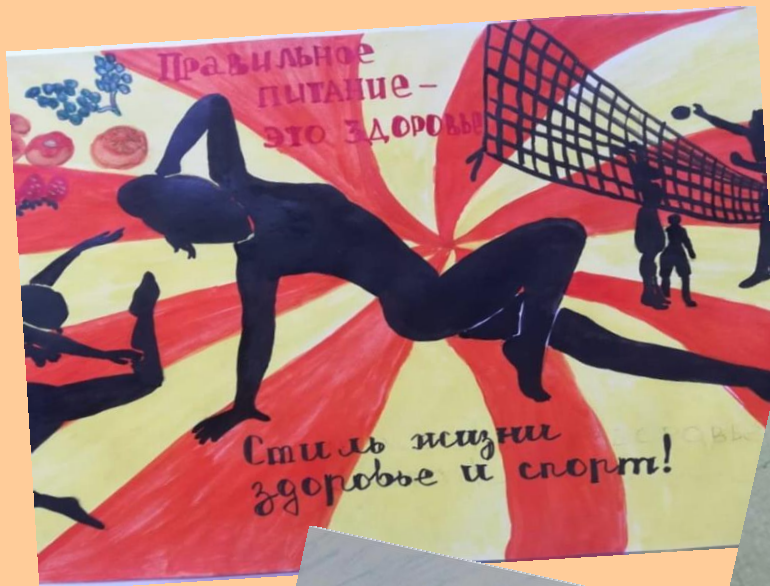 Правильное
питание -
это здоровье
Стиль жизни
здоровье и спорт!